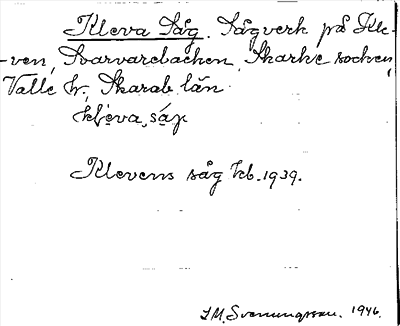 Kleva Såg. Sågverk på Kle-
-ven, Svarvarebacken, Skarke socken,
Valle hr, Skarab. län.
kḷeva såg
Klevens såg kb. 1939.
J.M. Svenungsson. 1946.